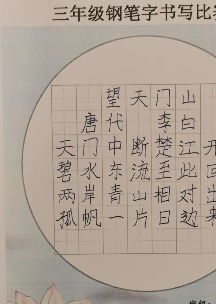 三年级钢笔字书写比
望天门山
唐代 李白
天门中断楚江开
碧水东流至此回
两岸青山相对出
孤帆一片日边来